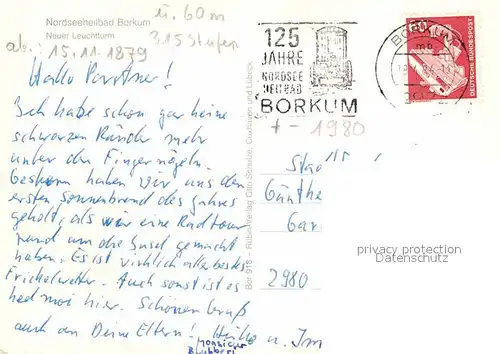 Nordseeheilbad Borkum
Neuer Leuchtturm
ü. 60 m
315 Stufen
ab: 15.11.1879
125
JAHRE
NORDSEE
HEILBAD
BORKUM
BORKUM
DEUTSCHE BUNDESPOST
60
+ - 1980
Hallo Partner!
Ich habe schon gar keine
schwarzen Ränder mehr
unter den Fingernägeln.
Gestern haben wir uns den
ersten Sonnenbrand des Jahres
geholt, als wir eine Radtour
rund um die Insel gemacht
haben. Es ist wirklich allerbestes
Wetter. Auch sonst ist es
hier. Schönen Gruß
auch an Deine Eltern! Heiko u. Im
Bor 916 - Rubin-Verlag Otto Cuxhaven und Lübeck
Günthe
Gar
2980
privacy protection
Datenschutz